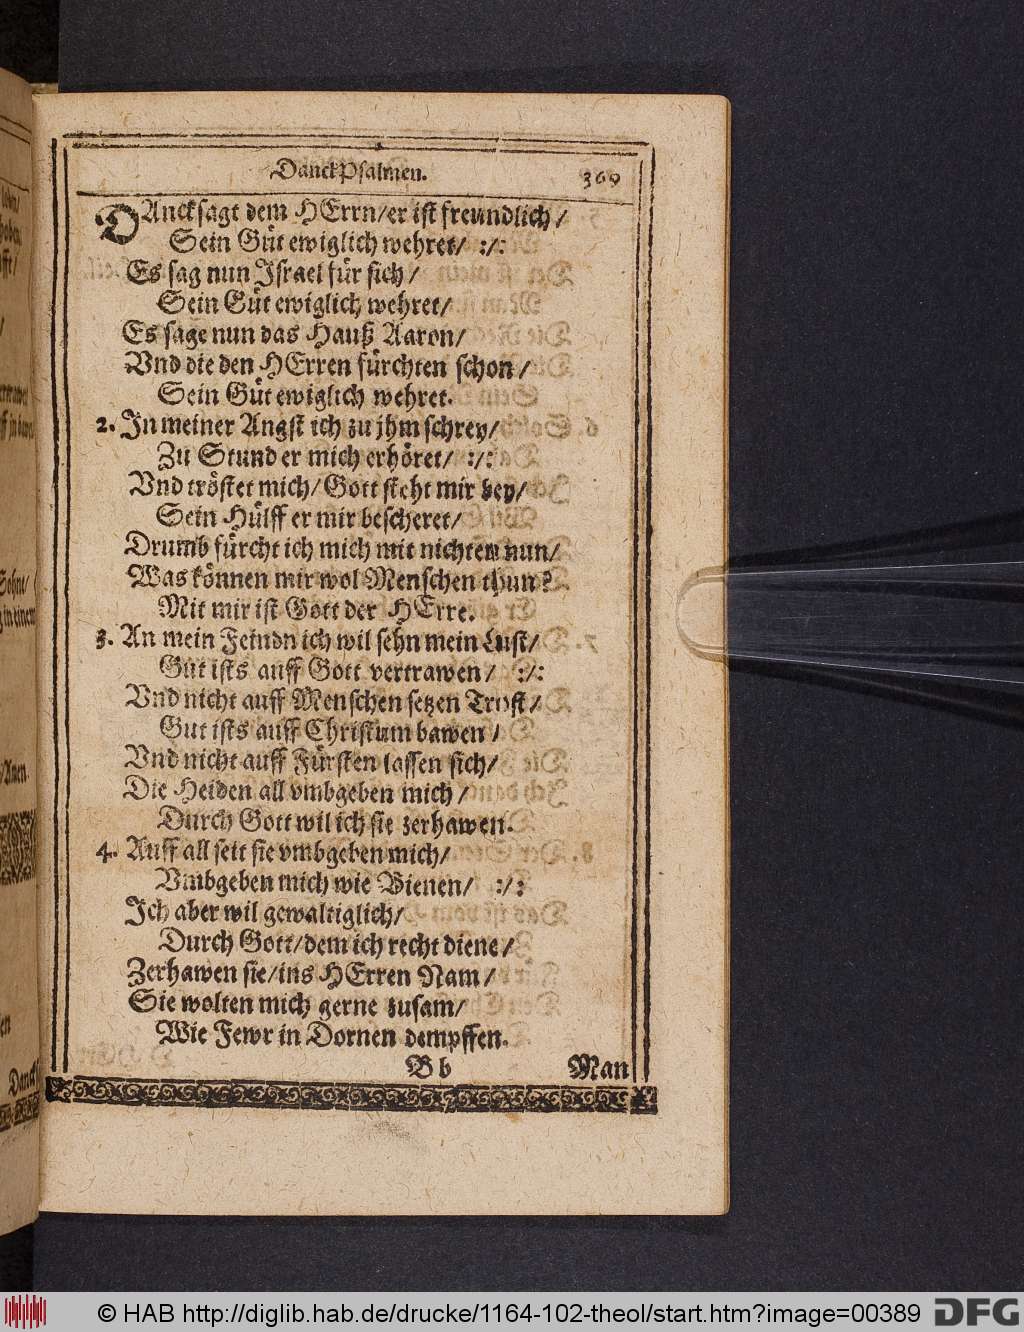 DanckPsalmen. 369
DAncksagt dem HErrn/er ist freundlich/
Sein Güt ewiglich wehret/ :/:
Es sag nun Israel für sich/
Sein Güt ewiglich wehret/
Es sage nun das Hauß Aaron/
Vnd die den HErren fürchten schon/
Sein Güt ewiglich wehret.
2. In meiner Angst ich zu jhm schrey/
Zu Stund er mich erhöret/ :/:
Vnd tröstet mich/Gott steht mir bey/
Sein Hülff er mir bescheret/
Drumb fürcht ich mich mit nichten nun/
Was können mir wol Menschen thun?
Mit mir ist Gott der HErre.
3. An mein Feindn ich wil sehn mein Lust/
Gut ists auff Gott vertrawen/ :/:
Vnd nicht auff Menschen setzen Trost/
Gut ists auff Christum bawen/
Vnd nicht auff Fürsten lassen sich/
Die Heiden all vmbgeben mich/
Durch Gott wil ich sie zerhawen.
4. Auff all seit sie vmbgeben mich/
Vmbgeben mich wie Bienen/ :/:
Ich aber wil gewaltiglich/
Durch Gott/dem ich recht diene/
Zerhawen sie/ins HErren Nam/
Sie wolten mich gerne zusam/
Wie Fewr in Dornen dempffen.
Bb Man
Sohne/
in einem
Danck
© HAB http://diglib.hab.de/drucke/1164-102-theol/start.htm?image=00389 DFG